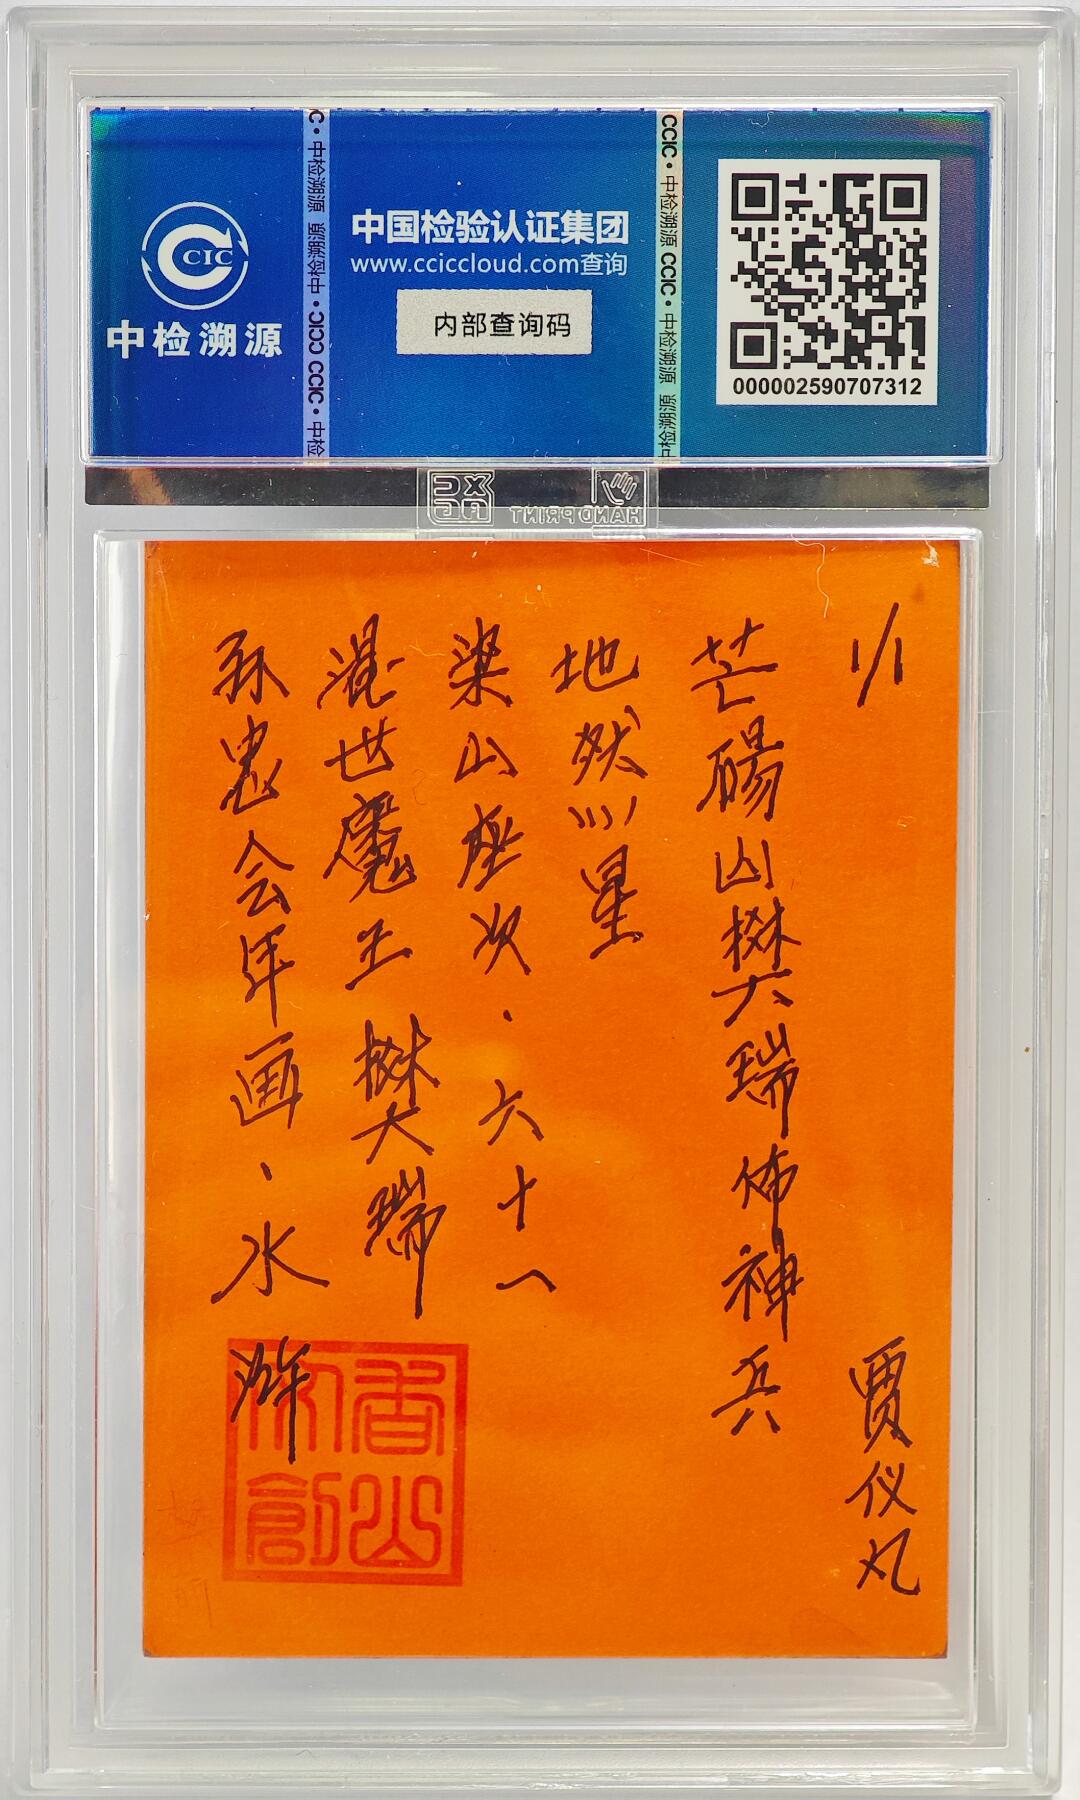 CIC
中检溯源
C·中检溯源 中检溯源·CCIC CCIC·中检
中国检验认证集团
www.cciccloud.com查询
内部查询码
CCIC·中检溯源 CCIC·中检溯源 中检溯源
000002590707312
HAND PRINT
1/1 贾仪丸
芒碭山樊瑞佈神兵
地然星
梁山座次·六十一
混世魔王 樊瑞
孙忠会年画·水浒
香山
創